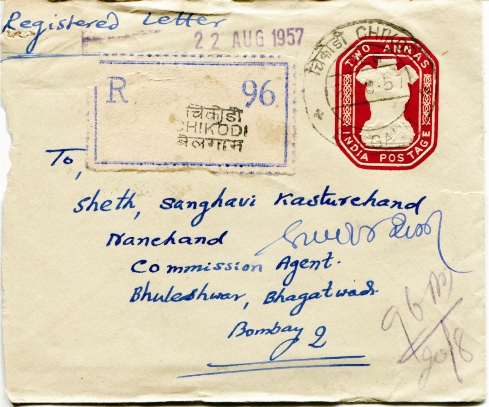 Registered Letter
22 AUG 1957
R 96
चिकोडी
CHIKODI
बेलगाम
चिकोडी
TWO ANNAS
INDIA POSTAGE
To,
Sheth, Sanghavi Kasturchand
Nanchand
Commission Agent.
Bhuleshwar, Bhagatwadi
Bombay 2